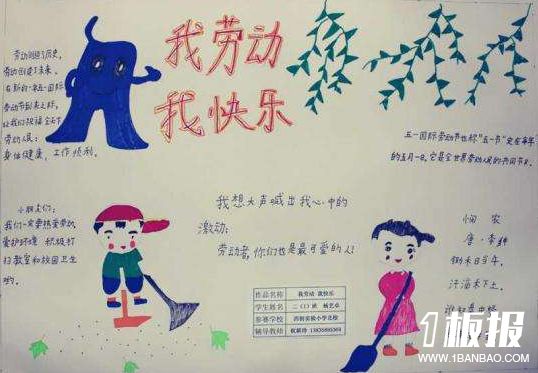 我劳动
我快乐
劳动创造了历史,
劳动创造了未来。
在新的一年五一国际
劳动节到来之际,
让我们祝福全天下
劳动人民:
身体健康,工作顺利。
五一国际劳动节也称"五一节"定在每年
的五月一日。它是全世界劳动人民的共同节日。
小朋友们:
我们一定要热爱劳动,
爱护环境 积极打
扫教室和校园卫生
哟。
我想大声喊出我心中的
激动:
劳动者,你们也是最可爱的人!
悯 农
唐·李绅
锄禾日当午,
汗滴禾下土。
谁知盘中餐
作品名称 我劳动 我快乐
学生姓名 二(1)班
参赛学校
辅导教师
1板报
WWW.1BANBAO.COM